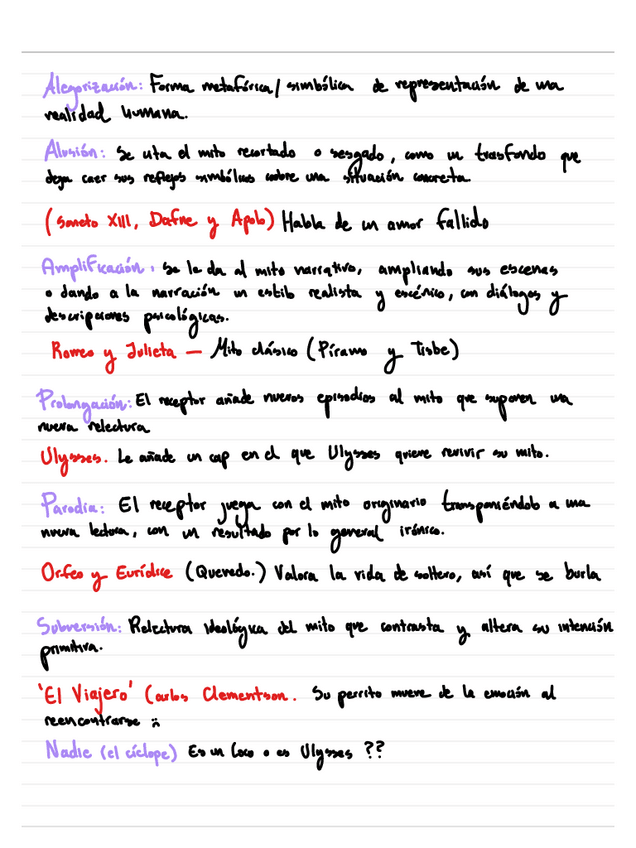 Alegorización: Forma metafórica/ simbólica de representación de una
realidad humana.
Alusión: Se cita el mito recortado o sesgado, como un trasfondo que
deja caer sus reflejos simbólicos sobre una situación concreta
(Soneto XIII, Dafne y Apolo) Habla de un amor fallido
Amplificación: se le da al mito narrativo, ampliando sus escenas
o dando a la narración un estilo realista y escénico, con diálogos y
descripciones psicológicas.
Romeo y Julieta — Mito clásico (Píramo y Tisbe)
Prolongación: El receptor añade nuevos episodios al mito que suponen una
nueva relectura
Ulysses. Le añade un cap en el que Ulysses quiere revivir su mito.
Parodia: El receptor juega con el mito originario transponiéndolo a una
nueva lectura, con un resultado por lo general irónico.
Orfeo y Eurídice (Quevedo.) Valora la vida de soltero, así que se burla
Subversión: Relectura ideológica del mito que contrasta y altera su intención
primitiva.
'El Viajero' Carlos Clementson. Su perrito muere de la emoción al
reencontrarse :(
Nadie (el cíclope) Es un loco o es Ulysses ??